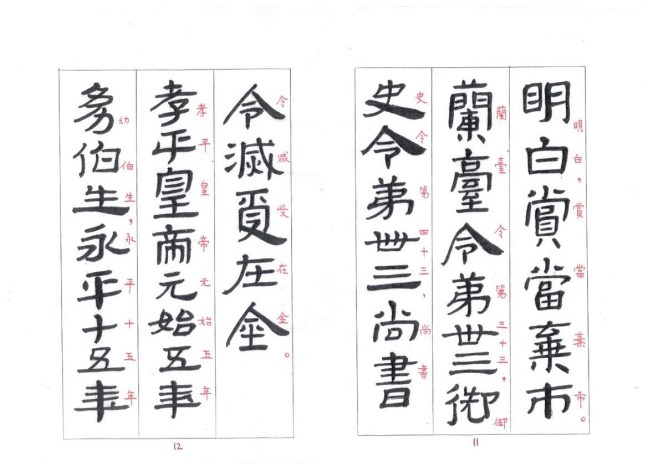 明白賞當棄市
明白，賞當棄市。
蘭臺令第卅三御
蘭臺令第三十三，御
史令第卌三尚書
史令第四十三，尚書
11
令滅受在金
令滅受在金。
孝平皇帝元始五年
孝平皇帝元始五年
幼伯生永平十五年
幼伯生，永平十五年
12